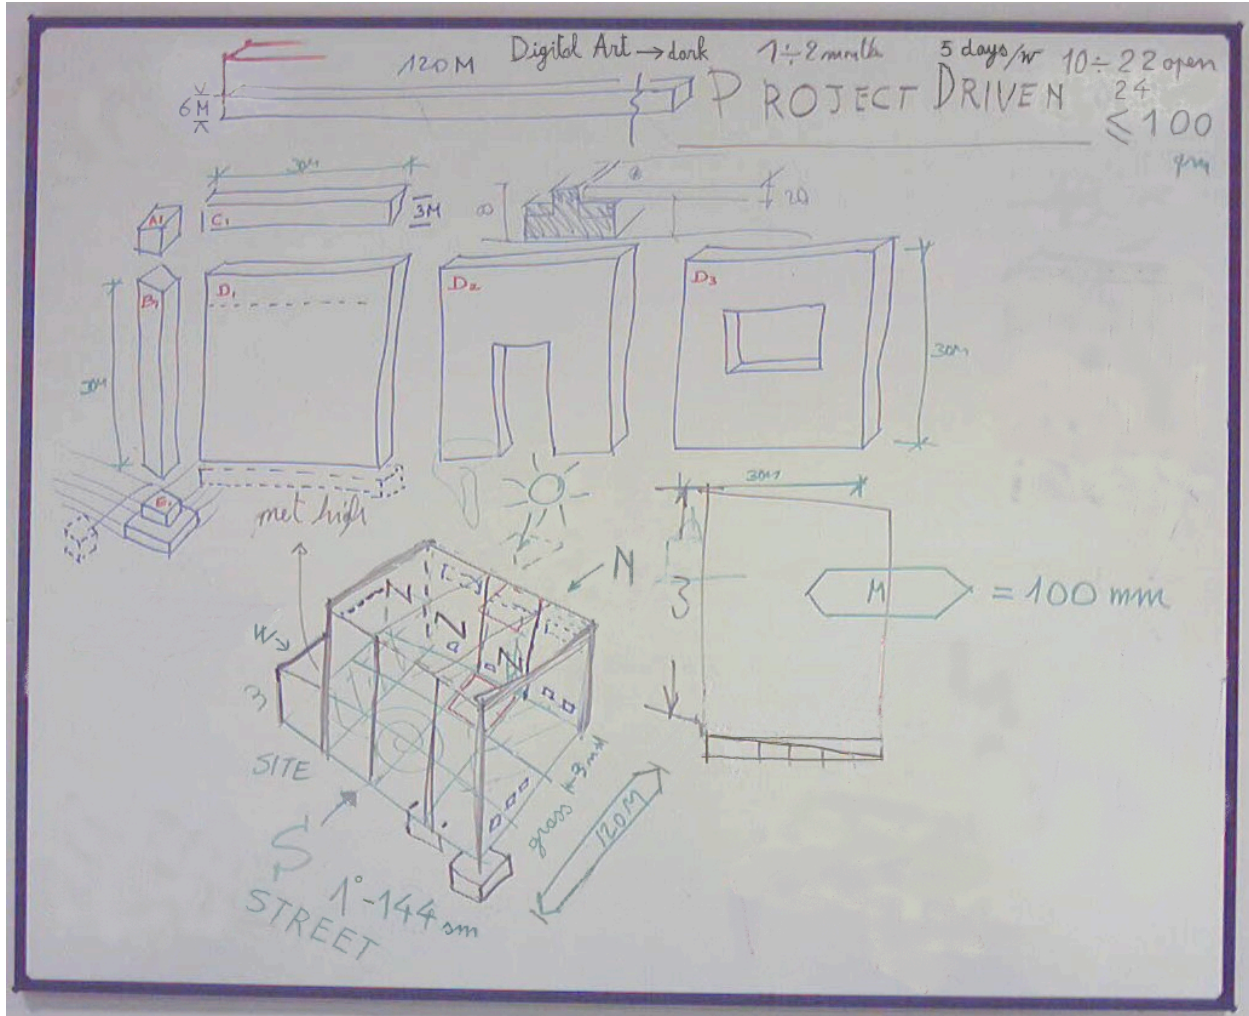 Digital Art → dark 1÷2 month 5 days/w 10÷22 open
24
PROJECT DRIVEN
≤ 100
120M
6M
30M
3M
A1
C1
8
20
B1
D1
D2
D3
30M
30M
E1
met high
30M
3
M = 100 mm
N
W
Z
Z
Z
3
SITE
S
STREET
1° - 144 sm
grass
120M